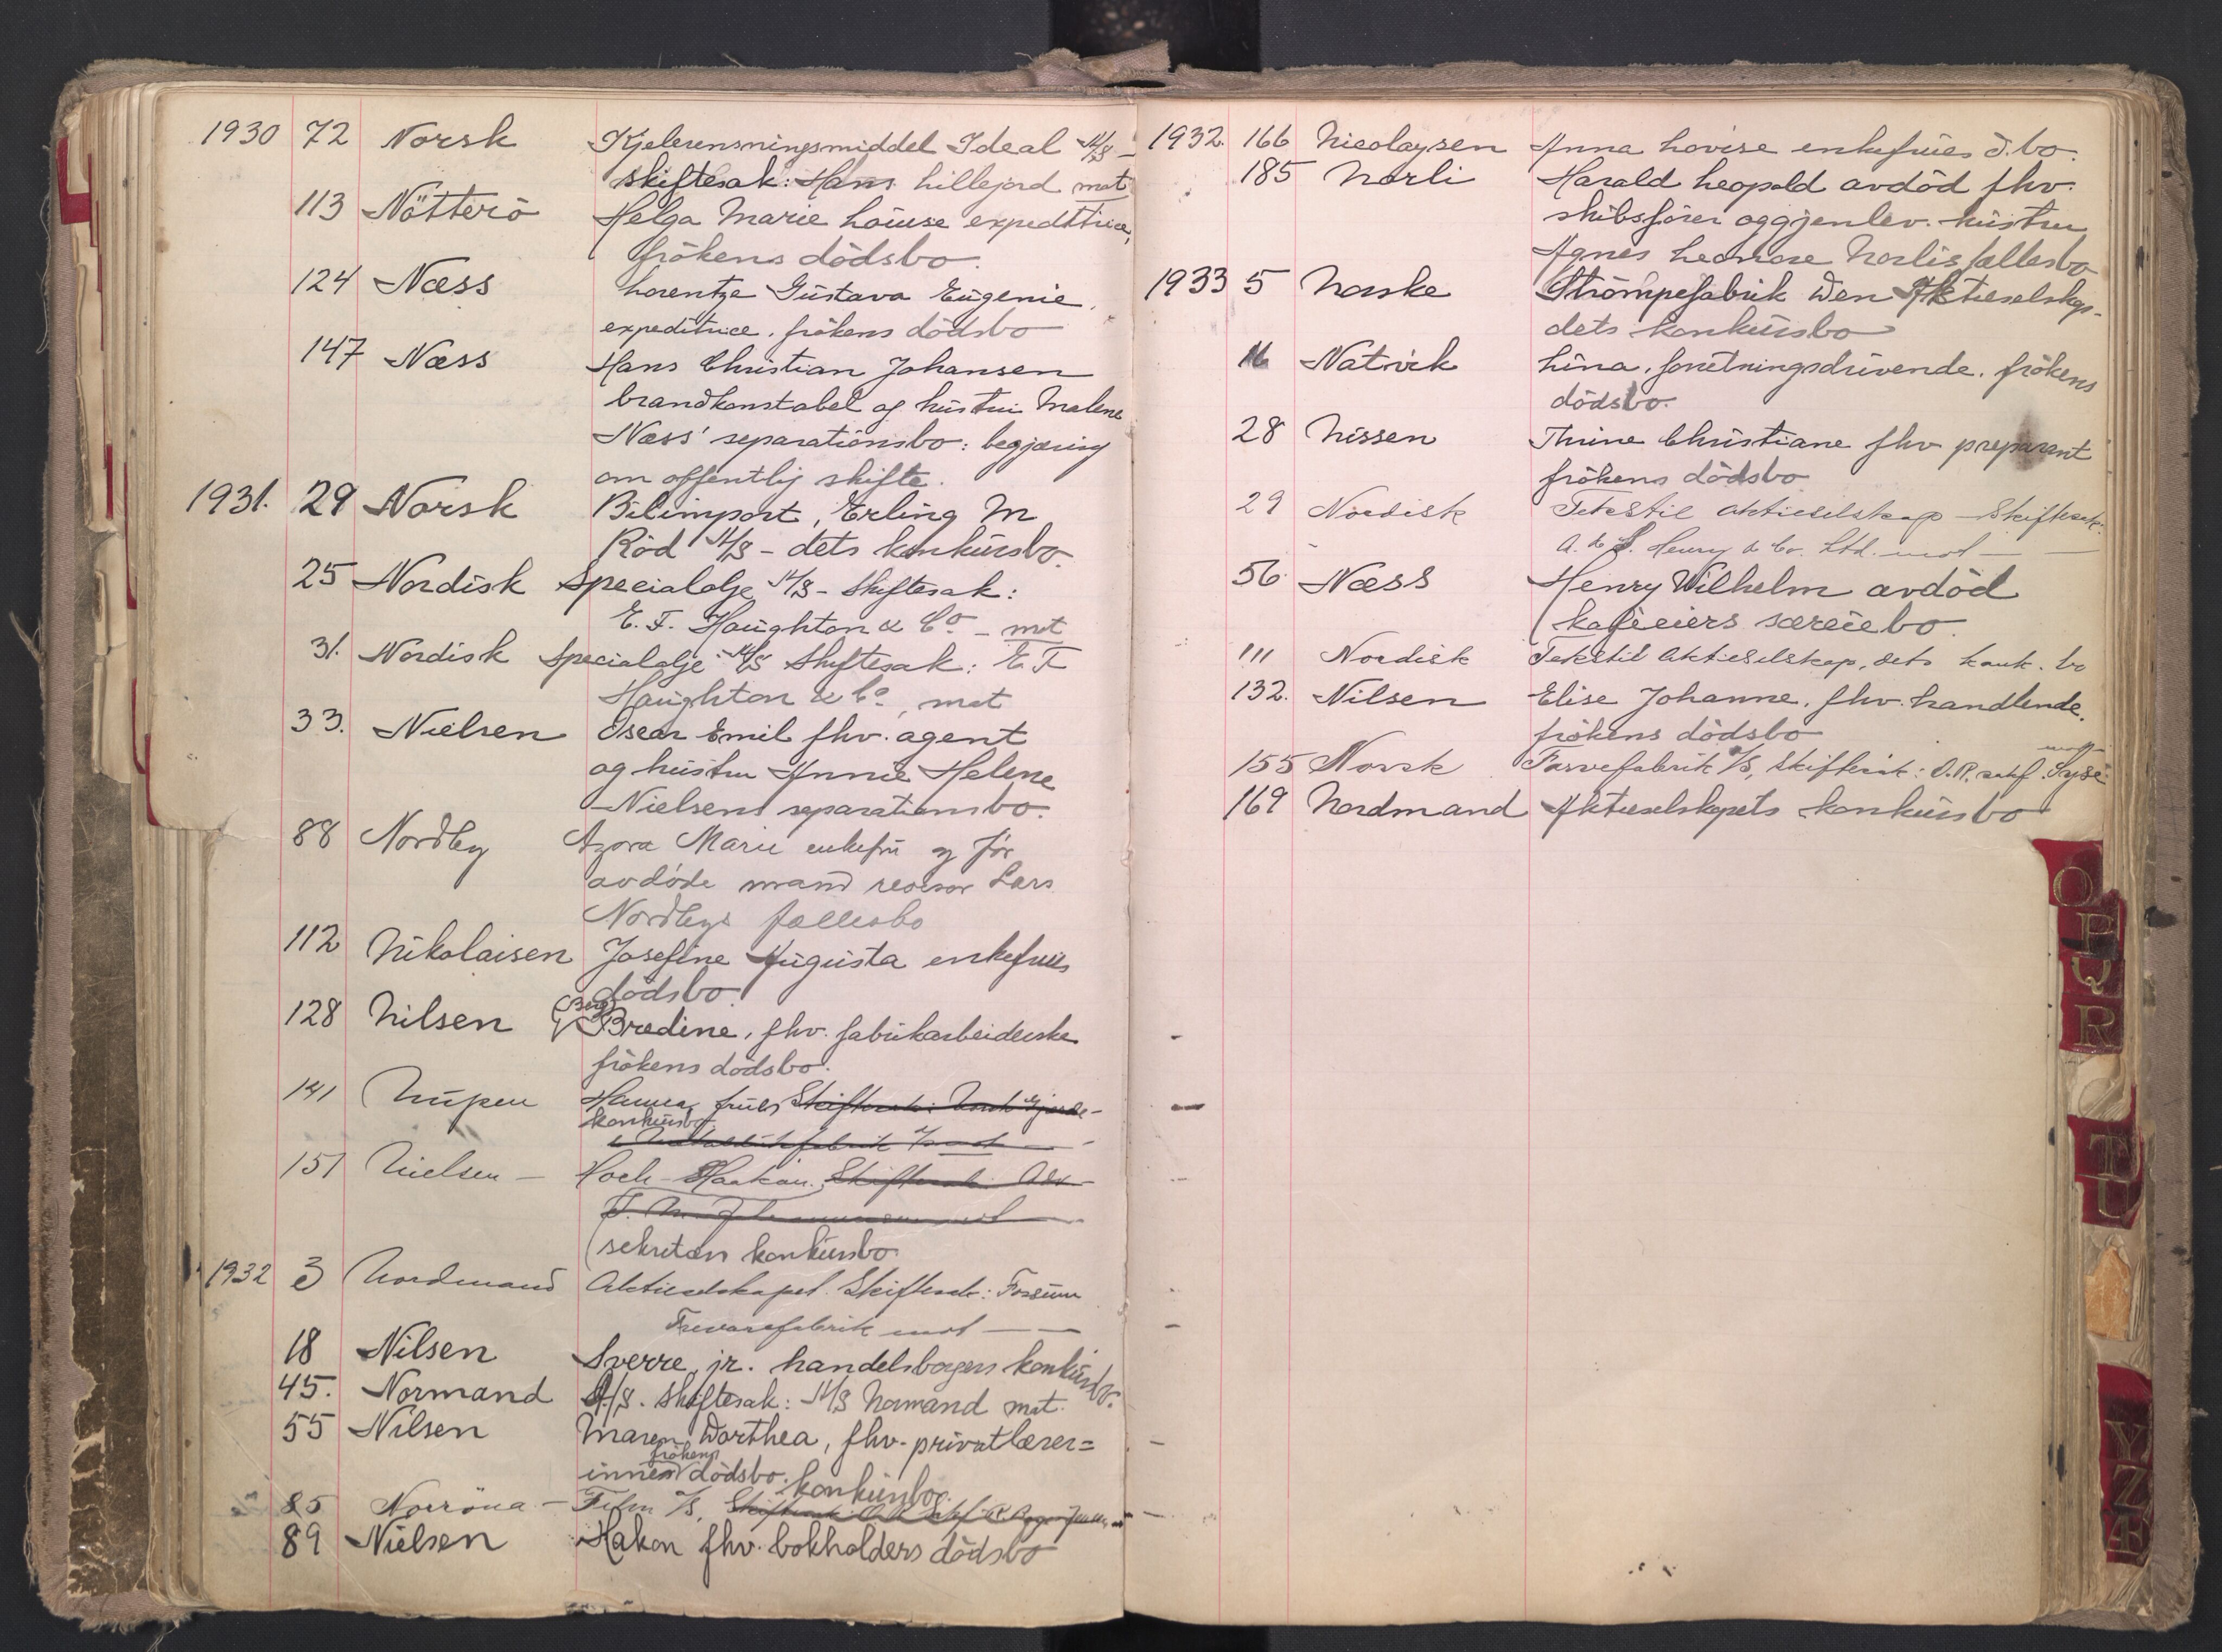 1930 72 Norsk Kjelerensningsmiddel Ideal A/S –
skiftesak: Hans Lillejord mot
113 Nötterö Helga Marie Louise expeditrice,
frökens dödsbo.
124 Næss Lorentze Gustava Eugenie
expeditrice. frökens dödsbo
147 Næss Hans Christian Johansen
brandkonstabel og hustru Malene
Næss' separationsbo: begjæring
om offentlig skifte.
1931. 29 Norsk Bilimport, Erling M
Röd A/S – dets konkursbo.
25 Nordisk Specialolje A/S – Skiftesak:
E. F. Houghton & Co – mot
31. Nordisk Specialolje A/S Skiftesak: E F
Houghton & Co, mot
33. Nielsen Oscar Emil fhv. agent
og hustru Annie Helene
Nielsens separationsbo.
88 Nordby Azora Marie enkefru og før
avdøde mand revisor Lars
Nordbys fællesbo
112 Nikolaisen Josefine Augusta enkefrues
dödsbo.
128 Nilsen (Berg) Bredine, fhv. fabrikarbeiderske
frökens dödsbo.
141 Nupen Hanna, frues Skiftesak:
konkursbo
151 Nielsen – Hoel – Haakon. Skiftesak:
sekretærs konkursbo
1932 3 Nordmand Aktieselskapet. Skiftesak: Fossum
Trevarefabrik mot ——
18 Nilsen Sverre, jr. handelsborgers konkursbo.
45. Normand A/S. Skiftesak: A/S Normand mot.
55 Nilsen Maren Dorthea, fhv. privatlærer=
frökens
innes dödsbo.
konkursbo.
85 Norröna – Film A/S, Skiftesak:
89 Nielsen Hakon fhv. bokholders dödsbo
1932. 166 Nicolaysen Anna Lovise enkefrues d.bo.
185 Norli Harald Leopold avdöd fhv.
skibsförer og gjenlev. hustru
Agnes Leonore Norlis fællesbo
1933 5 Norske Strömpefabrik Den Aktieselskap-
dets konkursbo
16 Natvik Lina. forretningsdrivende. frökens
dödsbo.
28 Nissen Thrine Christiane fhv preparant
frökens dödsbo
29 Nordisk Tekstil aktieselskap – Skiftesak:
A. & S. Henry & Co. Ltd. mot –
56 Næss Henry Wilhelm avdöd
kaféeiers særeiebo.
111 Nordisk Tekstil Aktieselskap, dets konk. bo
132. Nilsen Elise Johanne. fhv. handlende.
frökens dödsbo
mot
155 Norsk Farvefabrik A/S, Skiftesak: O.R.sakf.
169 Nordmand Aktieselskapets konkursbo
O
P
Q
R
T
U
Y
Z
Æ